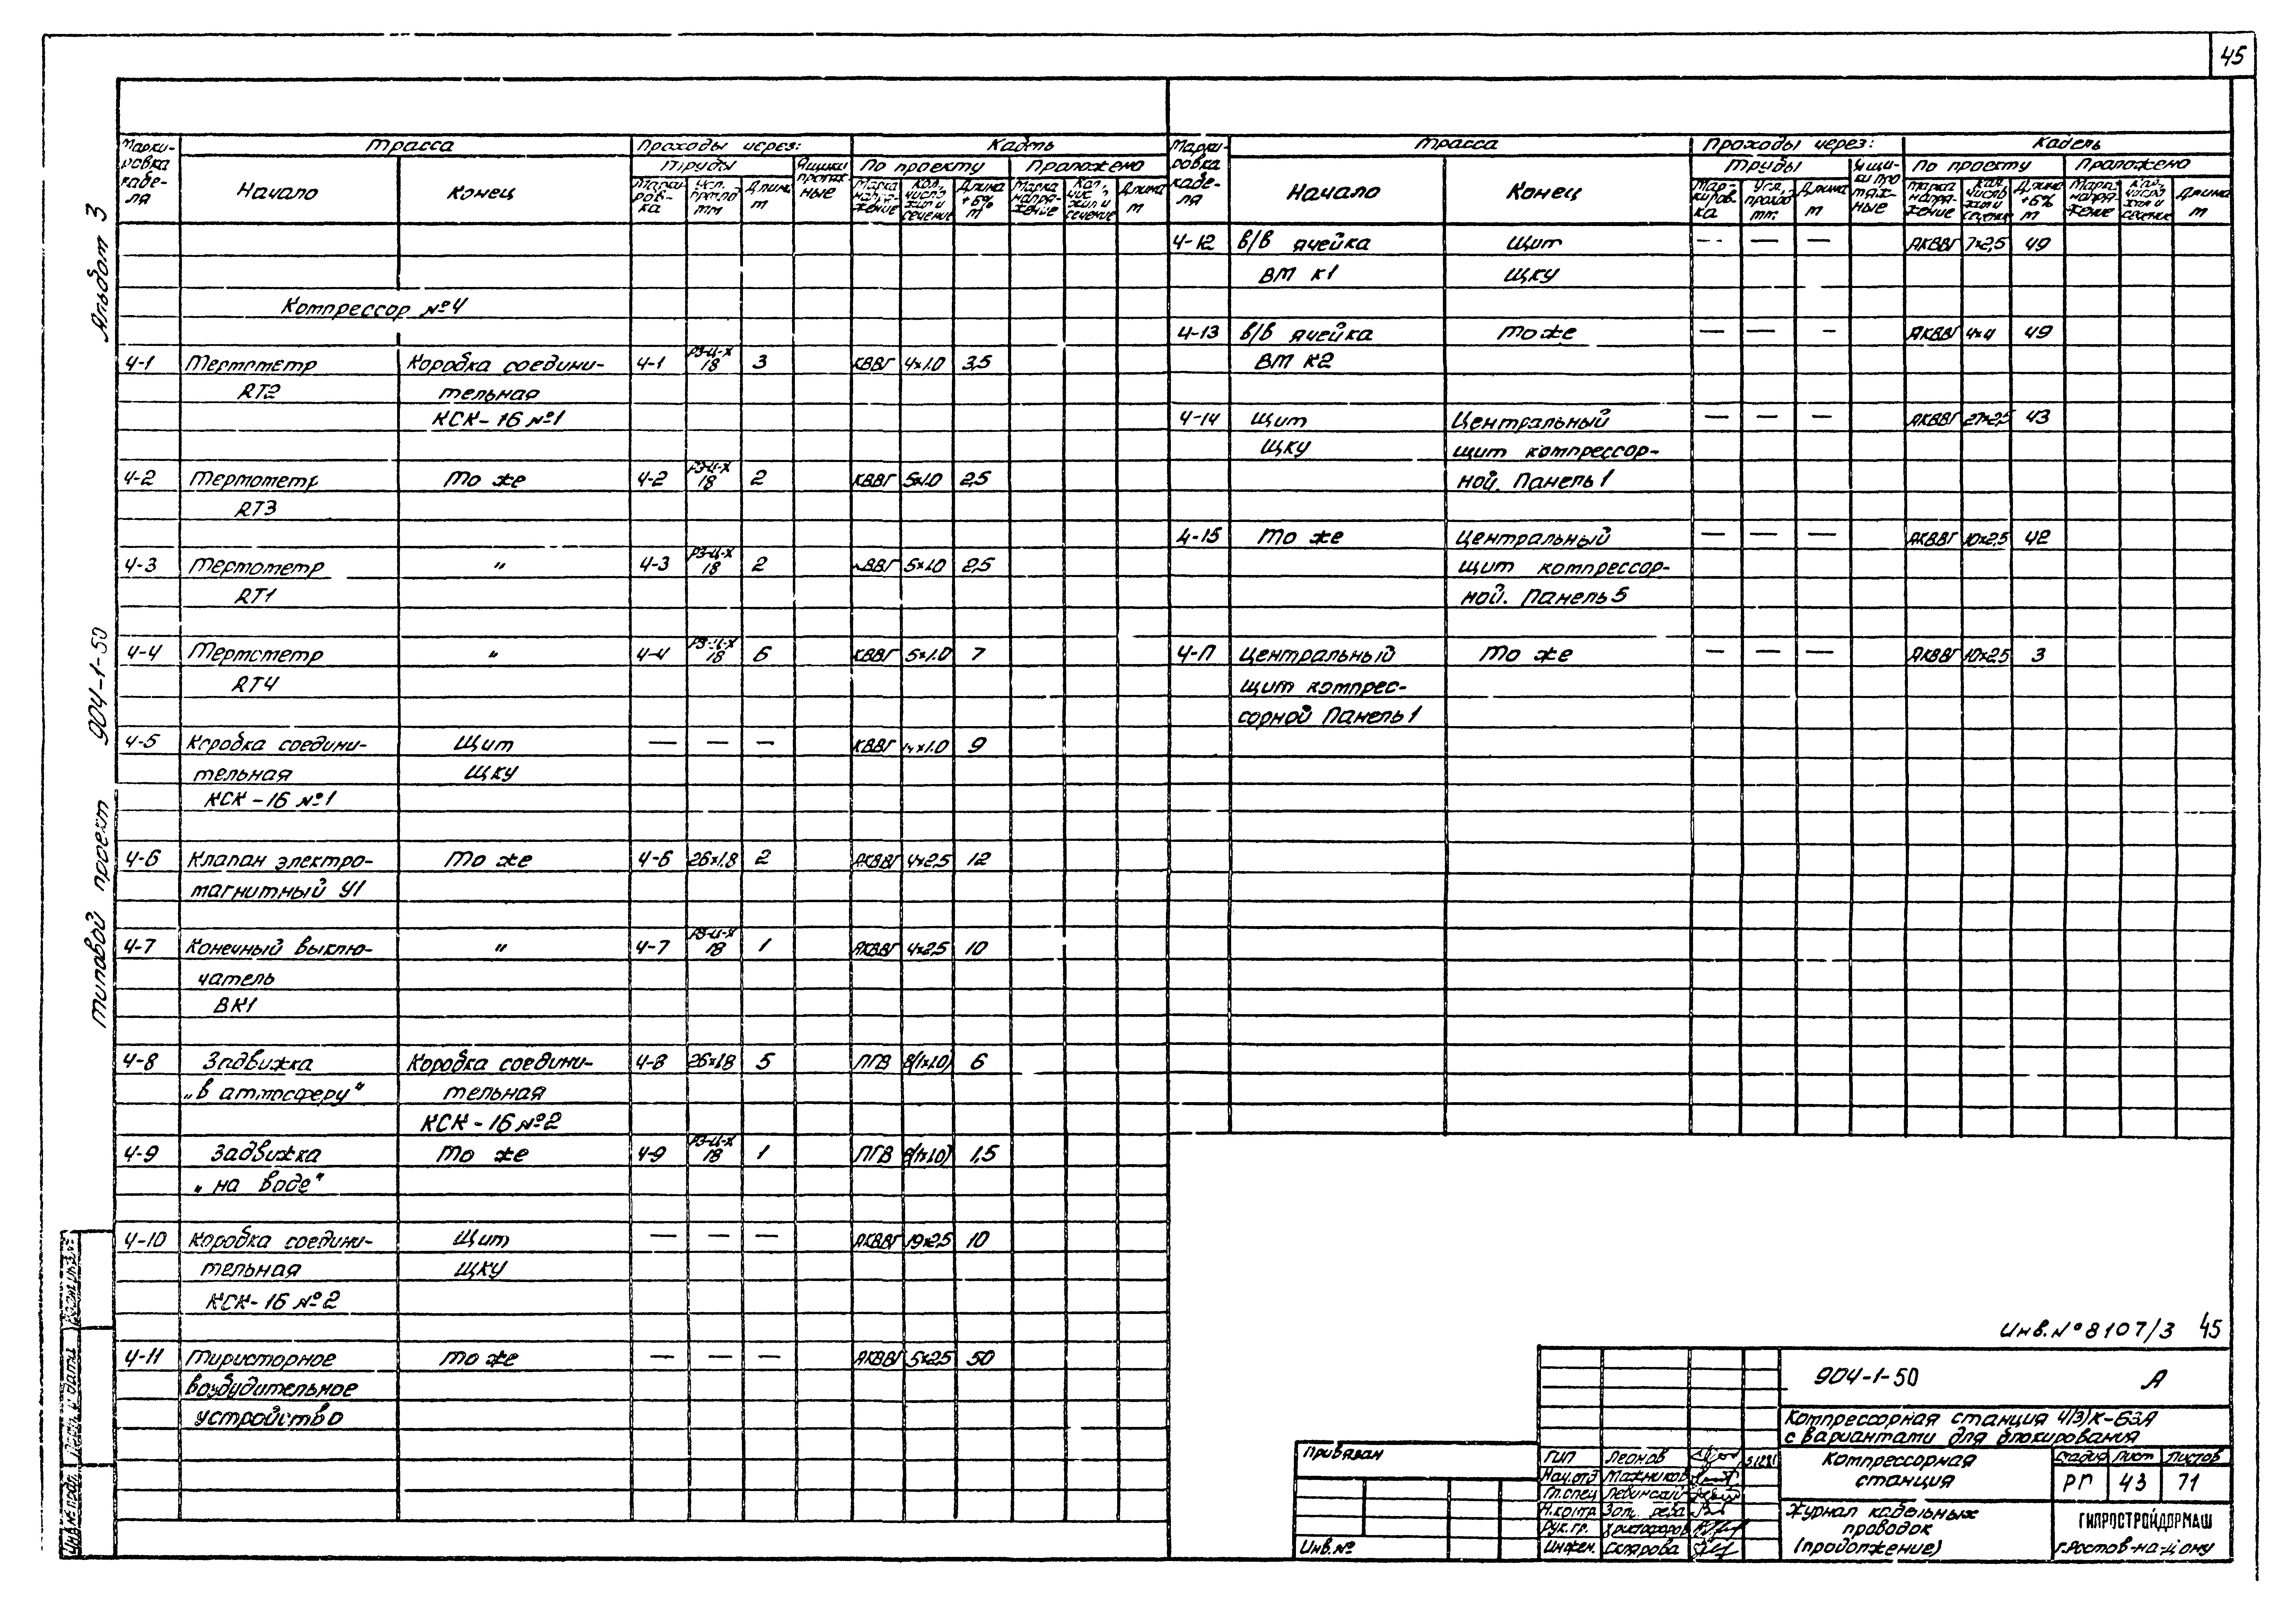 45
Альбом 3
Типовой проект 904-1-50
Марки-
ровка
кабе-
ля
Трасса
Проходы через:
Кабель
Начало
Конец
Трубы
Ящики
протяж
ные
По проекту
Проложено
Марки
ров-
ка
Усл.
проход
мм
Длина
м
Марка
напря-
жение
Кол.,
число
жил и
сечение
Длина
+6%
м
Марка
напря-
жение
Кол.,
чис.
жил и
сечение
Длина
м
Компрессор №4
4-1 Термометр Коробка соедини- 4-1 РЗ-Ц-Х 18 3 КВВГ 4х1.0 3,5
RT2 тельная
КСК-16 №1
4-2 Термометр То же 4-2 РЗ-Ц-Х 18 2 КВВГ 5х1.0 2,5
RT3
4-3 Термометр " 4-3 РЗ-Ц-Х 18 2 КВВГ 5х1.0 2,5
RT1
4-4 Термометр " 4-4 РЗ-Ц-Х 18 6 КВВГ 5х1.0 7
RT4
4-5 Коробка соедини- Щит — — — КВВГ 9
тельная ЩКУ
КСК-16 №1
4-6 Клапан электро- То же 4-6 26х1.8 2 АКВВГ 4х2,5 12
магнитный У1
4-7 Конечный выклю- " 4-7 РЗ-Ц-Х 18 1 АКВВГ 4х2,5 10
чатель
ВК1
4-8 Задвижка Коробка соедини- 4-8 26х1.8 5 ПГВ 8(1х1.0) 6
„в атмосферу" тельная
КСК-16 №2
4-9 Задвижка То же 4-9 РЗ-Ц-Х 18 1 ПГВ 8(1х1.0) 1,5
„на воде"
4-10 Коробка соедини- Щит — — — АКВВГ 19х2,5 10
тельная ЩКУ
КСК-16 №2
4-11 Тиристорное То же — — — АКВВГ 5х2,5 50
возбудительное
устройство
Марки-
ровка
кабе-
ля
Трасса
Проходы через:
Кабель
Начало
Конец
Трубы
Ящи-
ки про
тяж-
ные
По проекту
Проложено
Мар-
киров-
ка
Усл.
проход
мм.
Длина
м
Марка
напря-
жение
Кол.
число
жил и
сечение
Длина
+6%
м
Марка
напря-
жение
Кол.
число
жил и
сечение
Длина
м
4-12 В/В ячейка Щит — — — АКВВГ 7х2,5 49
ВМ К1 ЩКУ
4-13 В/В ячейка То же — — — АКВВГ 4х4 49
ВМ К2
4-14 Щит Центральный — — — АКВВГ 27х2,5 43
ЩКУ щит компрессор-
ной. Панель 1
4-15 То же Центральный — — — АКВВГ 10х2,5 42
щит компрессор-
ной. Панель 5
4-П Центральный То же — — — АКВВГ 10х2,5 3
щит компрес-
сорной Панель 1
Инв.№ 8107/3 45
904-1-50 А
Компрессорная станция 4(3)К-63А
с вариантами для блокирования
Компрессорная
станция
Стадия Лист Листов
РП 43 71
Журнал кабельных
проводок
(продолжение)
ГИПРОСТРОЙДОРМАШ
г.Ростов-на-Дону
Привязан
Инв.№
ГИП Леонов
Нач.отд Мажников
Гл.спец Левинский
Н.контр
Рук.гр. Христофоров
Инжен. Склярова
Инв.№ подл.
Подп. и дата
Взам.инв.№